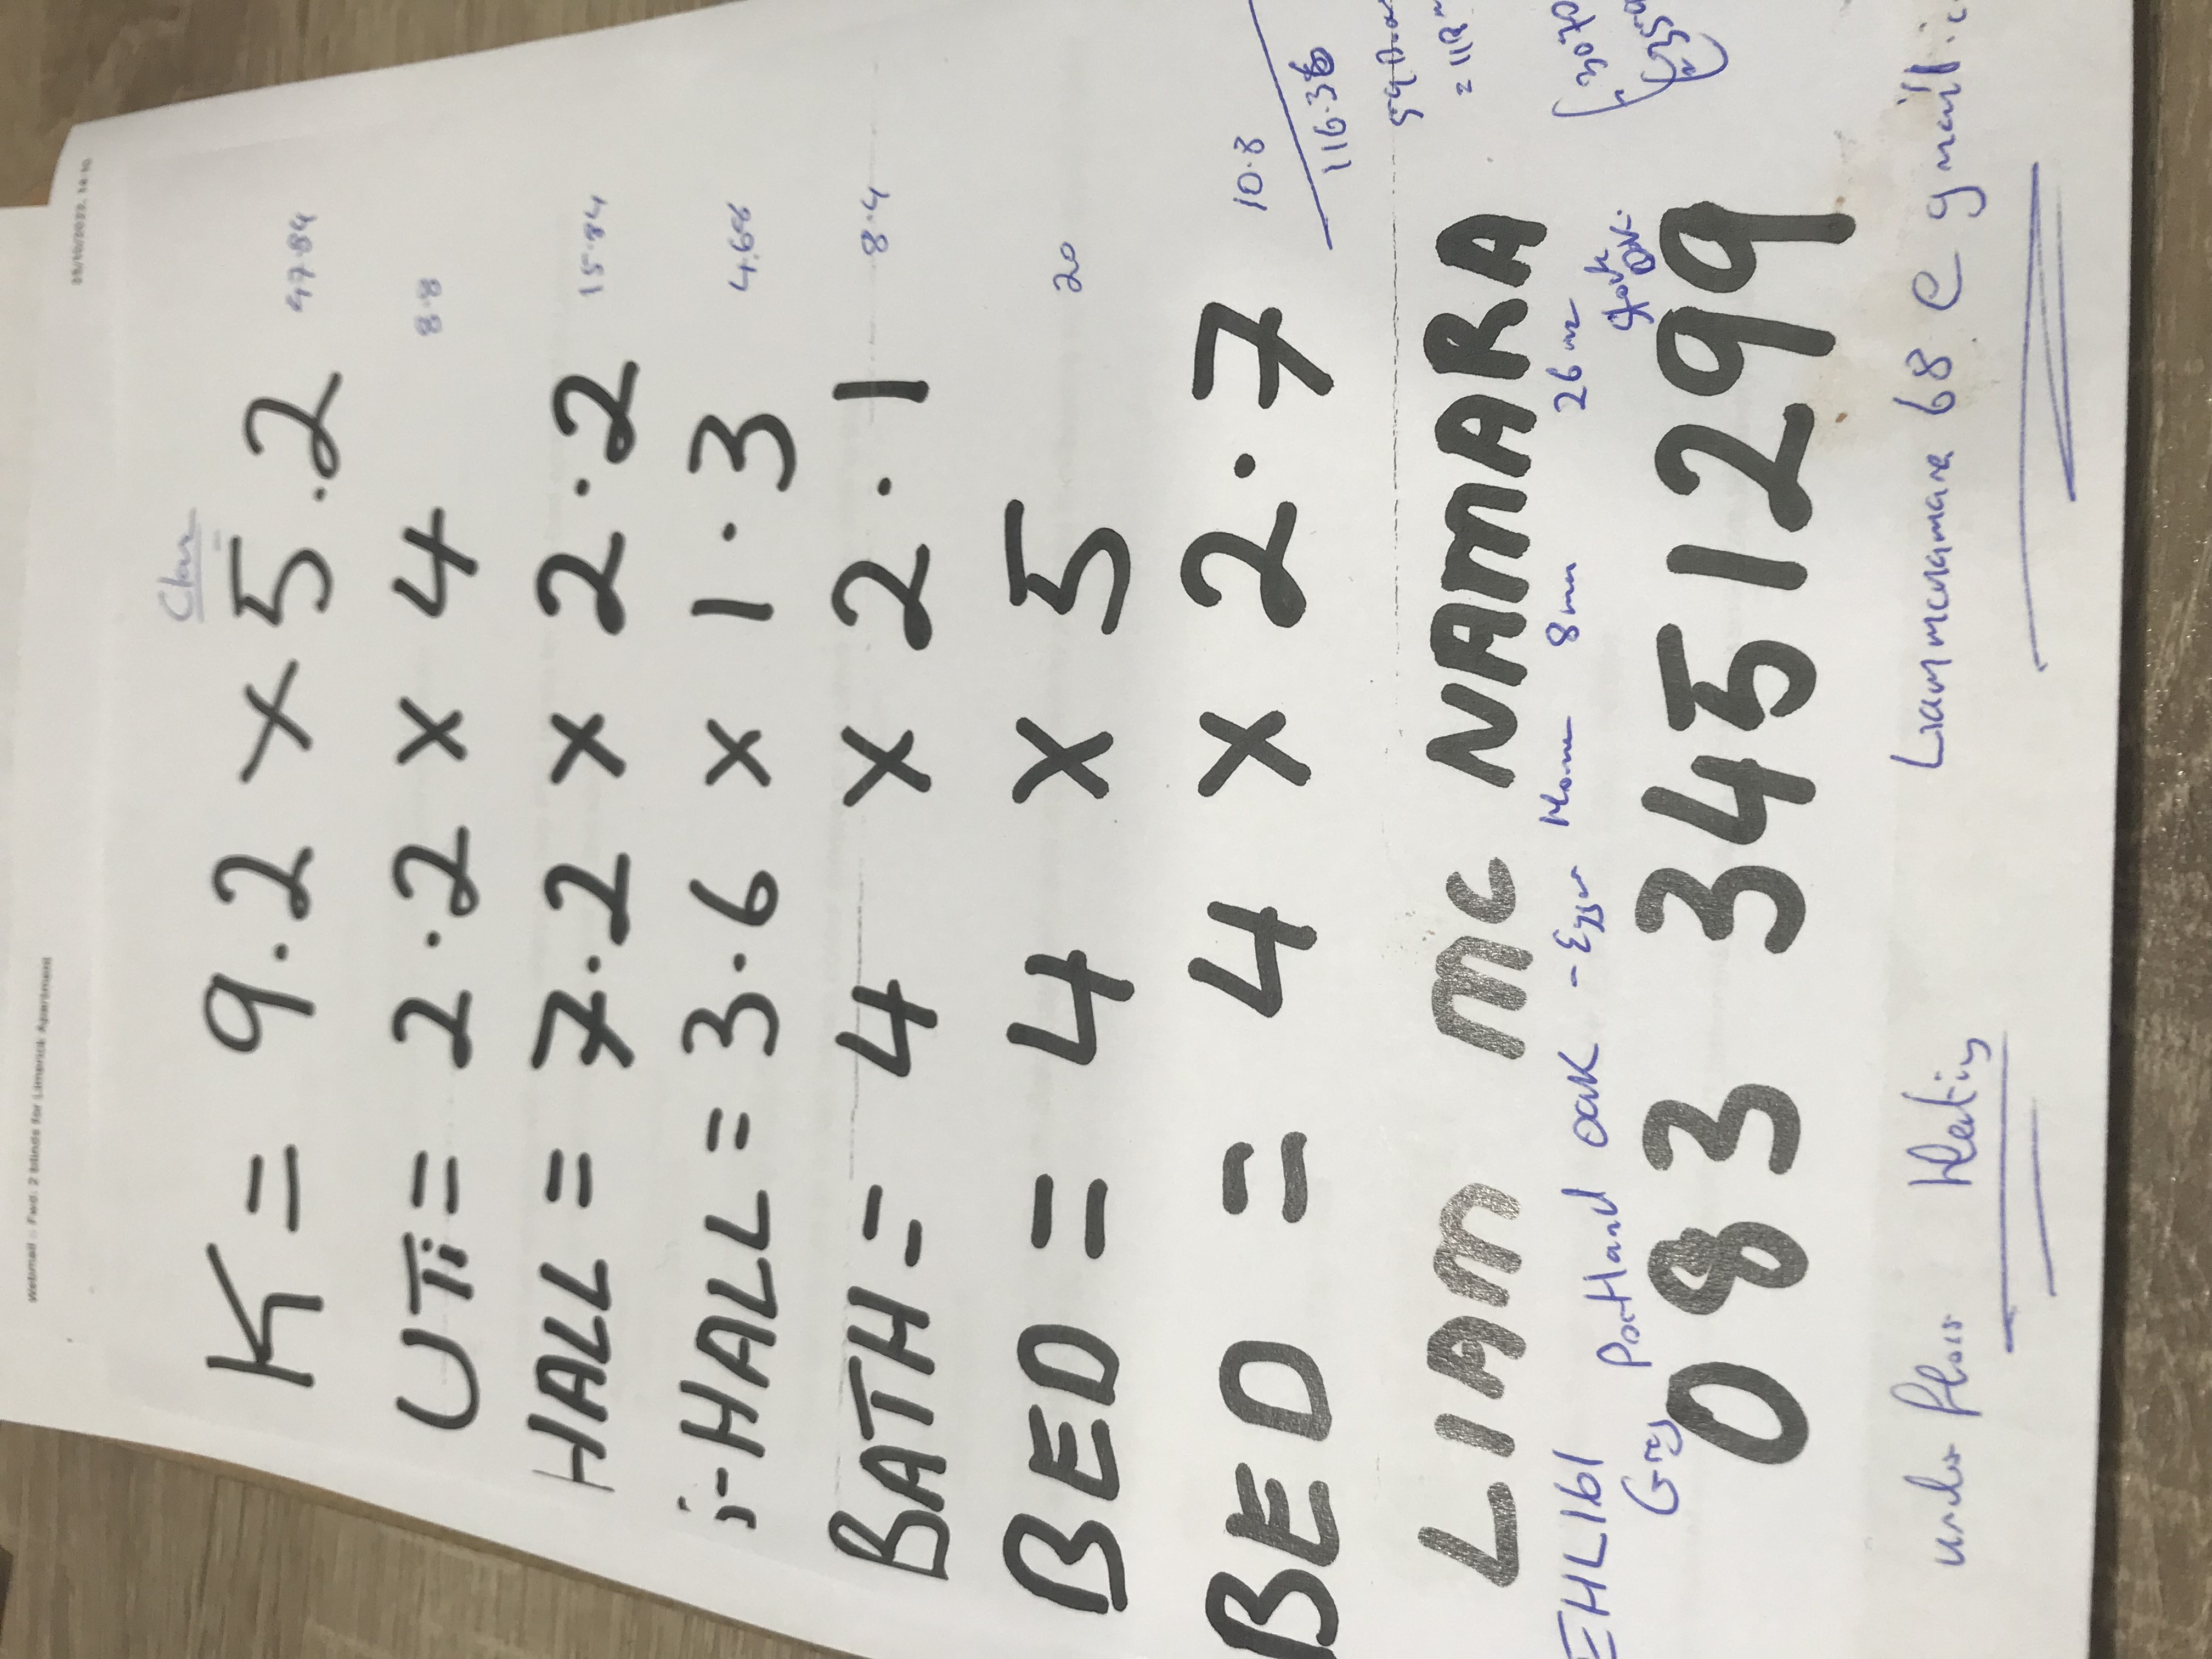 Webmail :: Fwd: 2 blinds for Limerick Apartment
Clare
K = 9.2 x 5.2 47.84
UTi = 2.2 x 4 8.8
HALL = 7.2 x 2.2 15.84
i-HALL = 3.6 x 1.3 4.68
BATH = 4 x 2.1 8.4
BED = 4 x 5 20
BED = 4 x 2.7 10.8
116.36
LIAM MC NAMARA
EHL161 Portland oak - Egger Home 8mm 26m2
Grey
083 3451299
under floor Heating
Liammcnamara68@gmail.c